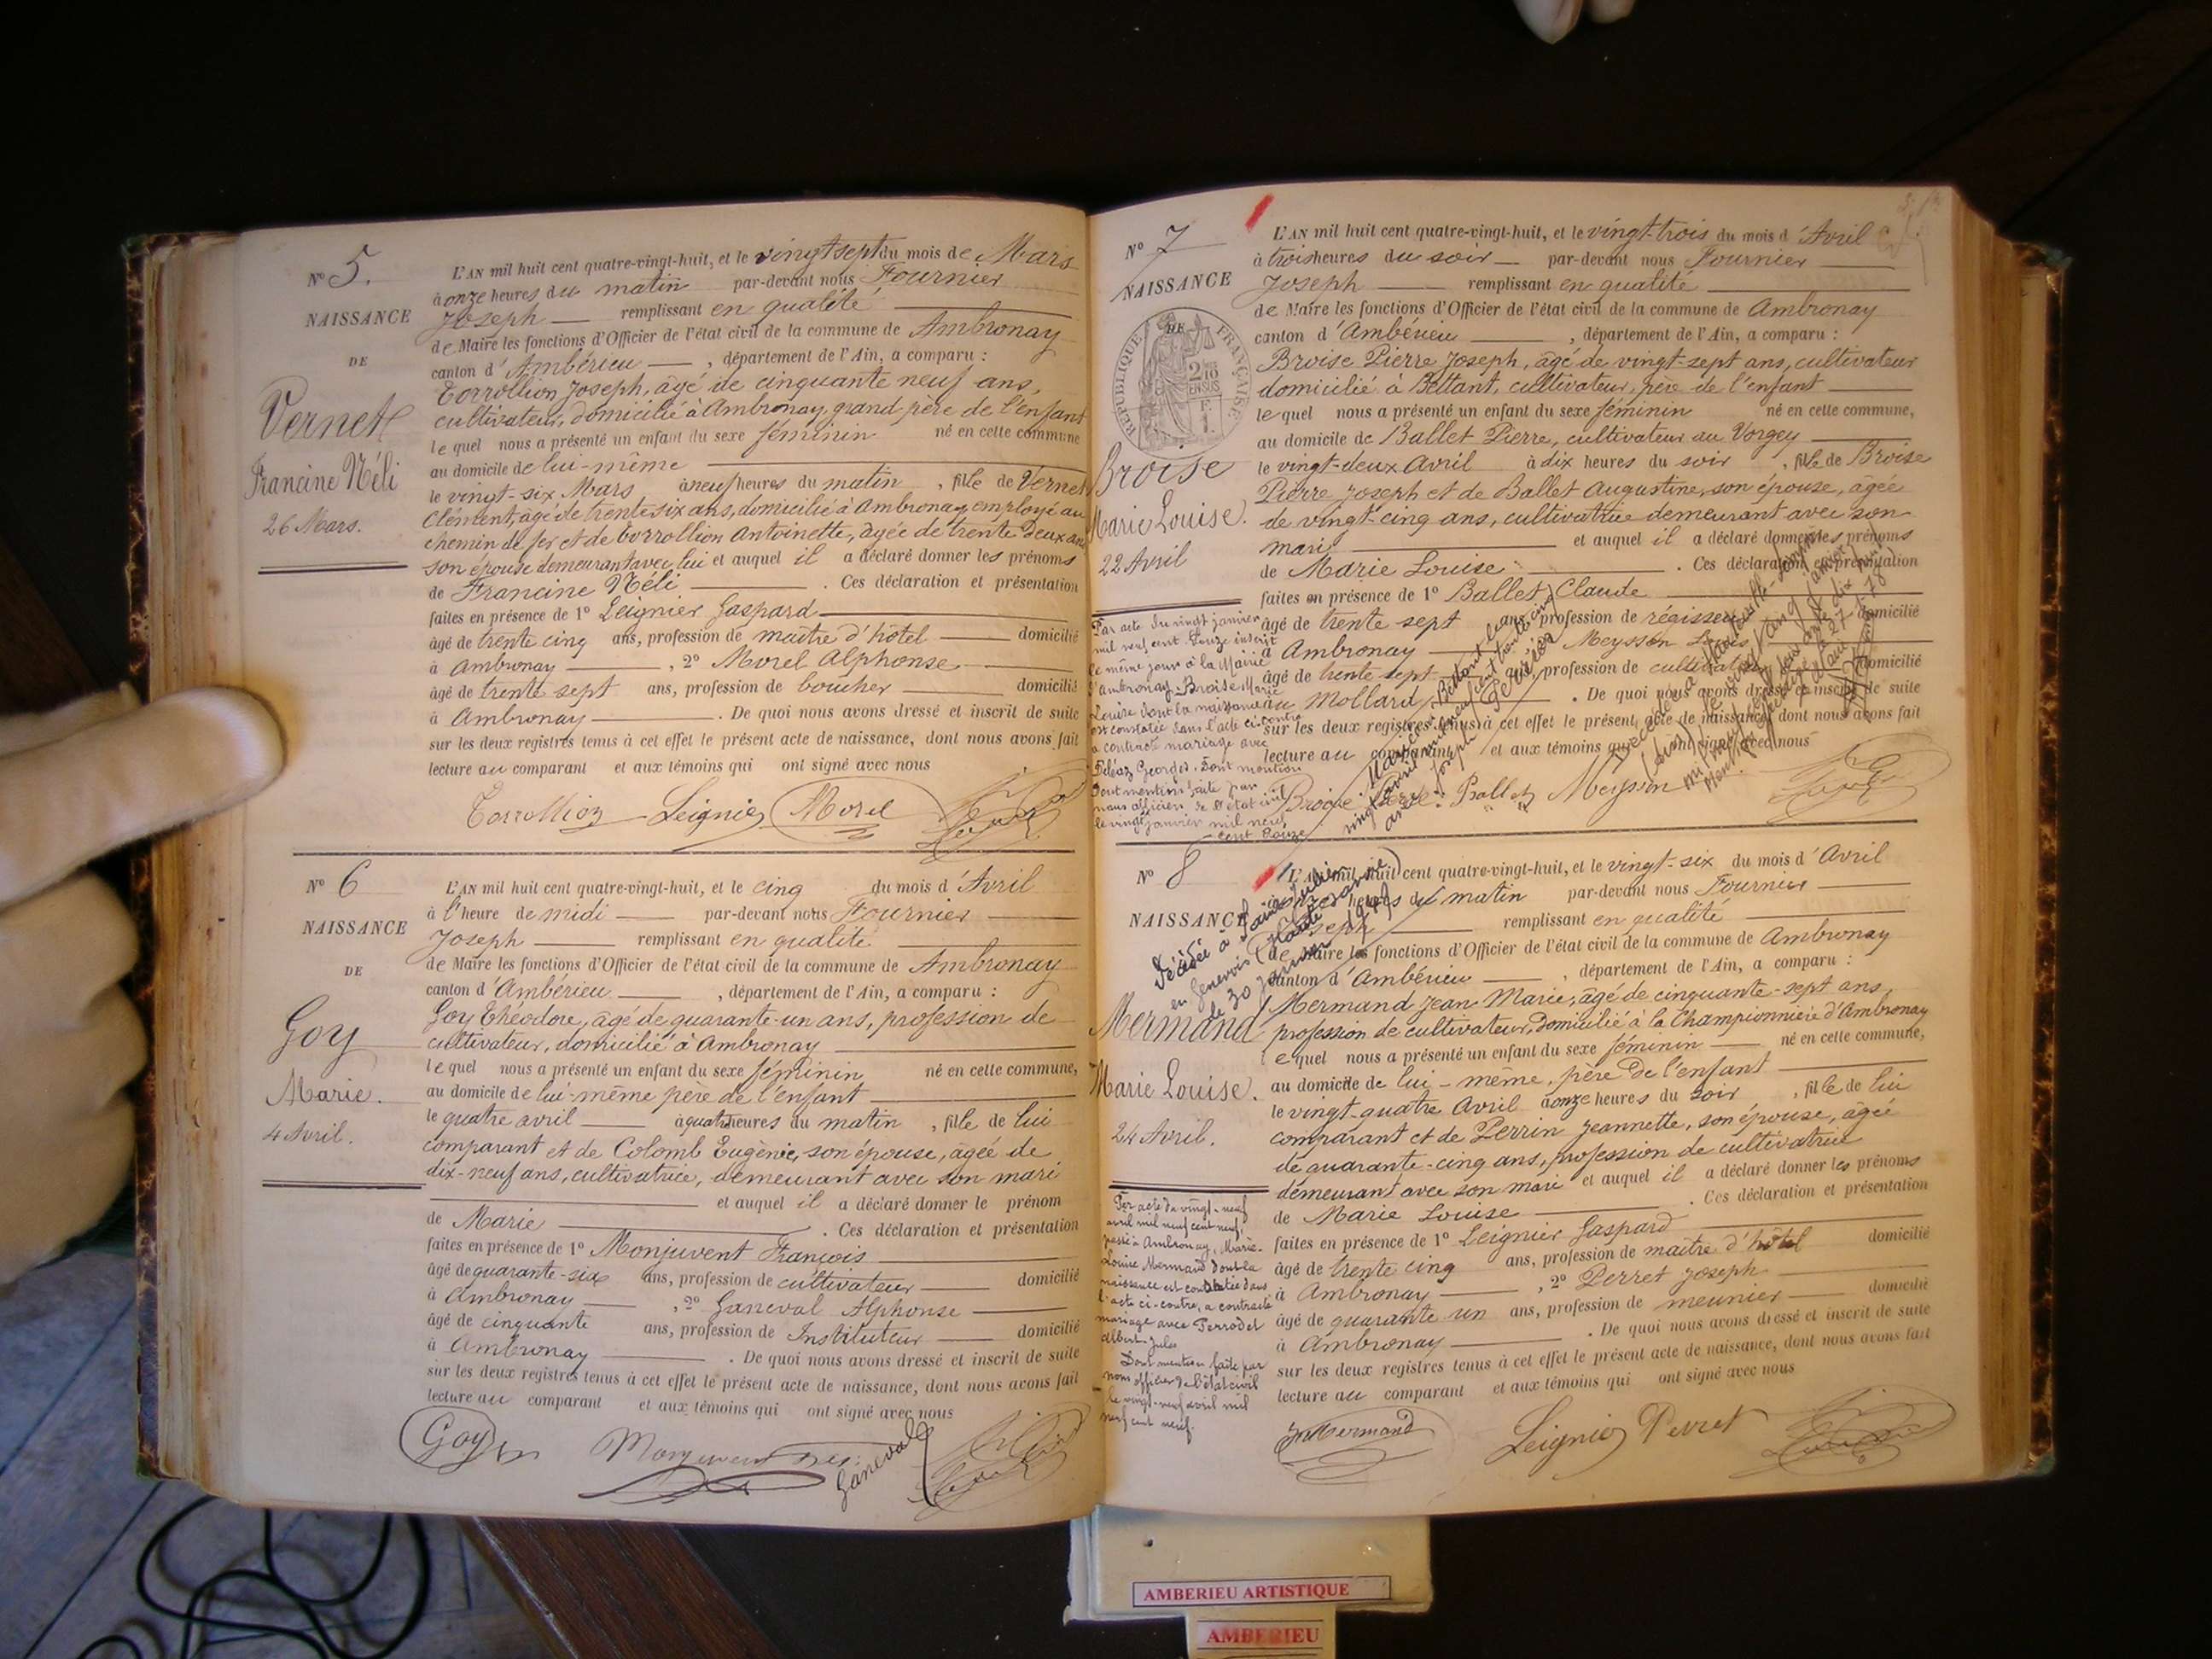 N° 5.
NAISSANCE
DE
Vernet
Francine Néli
26 Mars.
L'AN mil huit cent quatre-vingt-huit, et le vingt sept du mois de Mars
à onze heures du matin par-devant nous Fournier
Joseph remplissant en qualité
de Maire les fonctions d'Officier de l'état civil de la commune de Ambronay
canton d'Ambérieu, département de l'Ain, a comparu :
Corrollion Joseph, âgé de cinquante neuf ans,
cultivateur, domicilié à Ambronay, grand père de l'enfant
lequel nous a présenté un enfant du sexe féminin né en cette commune
au domicile de lui-même
le vingt-six Mars à neuf heures du matin, fille de Vernet
Clément, âgé de trente six ans, domicilié à Ambronay employé au
chemin de fer et de Corrollion Antoinette, âgée de trente deux ans
son épouse demeurant avec lui et auquel il a déclaré donner les prénoms
de Francine Néli. Ces déclaration et présentation
faites en présence de 1° Leignier Gaspard
âgé de trente cinq ans, profession de maître d'hôtel domicilié
à Ambronay, 2° Morel Alphonse
âgé de trente sept ans, profession de boucher domicilié
à Ambronay. De quoi nous avons dressé et inscrit de suite
sur les deux registres tenus à cet effet le présent acte de naissance, dont nous avons fait
lecture au comparant et aux témoins qui ont signé avec nous
Corrollion Leignier Morel
N° 6
NAISSANCE
DE
Goy
Marie.
4 Avril.
L'AN mil huit cent quatre-vingt-huit, et le cinq du mois d'Avril
à l'heure de midi par-devant nous Fournier
Joseph remplissant en qualité
de Maire les fonctions d'Officier de l'état civil de la commune de Ambronay
canton d'Ambérieu, département de l'Ain, a comparu :
Goy Théodore, âgé de quarante-un ans, profession de
cultivateur, domicilié à Ambronay
lequel nous a présenté un enfant du sexe féminin né en cette commune,
au domicile de lui-même père de l'enfant
le quatre avril à quatre heures du matin, fille de lui
comparant et de Colomb Eugénie, son épouse, âgée de
dix-neuf ans, cultivatrice, demeurant avec son mari
et auquel il a déclaré donner le prénom
de Marie. Ces déclaration et présentation
faites en présence de 1° Monjuvent François
âgé de quarante-six ans, profession de cultivateur domicilié
à Ambronay, 2° Ganeval Alphonse
âgé de cinquante ans, profession de Instituteur domicilié
à Ambronay. De quoi nous avons dressé et inscrit de suite
sur les deux registres tenus à cet effet le présent acte de naissance, dont nous avons fait
lecture au comparant et aux témoins qui ont signé avec nous
Goy Ganeval
N° 7
NAISSANCE
DE
RÉPUBLIQUE FRANÇAISE
Broise
Marie Louise.
22 Avril
L'AN mil huit cent quatre-vingt-huit, et le vingt-trois du mois d'Avril
à trois heures du soir par-devant nous Fournier
Joseph remplissant en qualité
de Maire les fonctions d'Officier de l'état civil de la commune de Ambronay
canton d'Ambérieu, département de l'Ain, a comparu :
Broise Pierre Joseph, âgé de vingt-sept ans, cultivateur
domicilié à Bettant, cultivateur, père de l'enfant
lequel nous a présenté un enfant du sexe féminin né en cette commune,
au domicile de Ballet Pierre, cultivateur au Vorgey
le vingt-deux Avril à dix heures du soir, fille de Broise
Pierre Joseph et de Ballet Augustine, son épouse, âgée
de vingt-cinq ans, cultivatrice demeurant avec son
mari et auquel il a déclaré donner les prénoms
de Marie Louise. Ces déclaration et présentation
faites en présence de 1° Ballet Claude
âgé de trente sept ans, profession de régisseur domicilié
à Ambronay Meysson
âgé de trente sept ans, profession de cultivateur domicilié
au Mollard. De quoi nous avons dressé et inscrit de suite
sur les deux registres tenus à cet effet le présent acte de naissance, dont nous avons fait
lecture au comparant et aux témoins qui ont signé avec nous
Broise Ballet Meysson
Par acte du vingt janvier
mil neuf cent douze inscrit
le même jour à la Mairie
d'Ambronay, Broise Marie
Louise dont la naissance
est constatée dans l'acte ci-contre
a contracté mariage avec
Georges. Dont mention
Dont mention faite par
nous officier de l'état civil
le vingt janvier mil neuf
cent douze
N° 8
NAISSANCE
Mermand
Marie Louise.
24 Avril.
Décédée à Saint Julien
en Genevois (Haute Savoie)
le 30 janvier
L'AN mil huit cent quatre-vingt-huit, et le vingt-six du mois d'Avril
heures du matin par-devant nous Fournier
Joseph remplissant en qualité
de Maire les fonctions d'Officier de l'état civil de la commune de Ambronay
canton d'Ambérieu, département de l'Ain, a comparu :
Mermand Jean Marie, âgé de cinquante-sept ans,
profession de cultivateur, domicilié à la Championnière d'Ambronay
lequel nous a présenté un enfant du sexe féminin né en cette commune,
au domicile de lui-même, père de l'enfant
le vingt-quatre Avril à onze heures du soir, fille de lui
comparant et de Perrin Jeannette, son épouse, âgée
de quarante-cinq ans, profession de cultivatrice
demeurant avec son mari et auquel il a déclaré donner les prénoms
de Marie Louise. Ces déclaration et présentation
faites en présence de 1° Leignier Gaspard
âgé de trente cinq ans, profession de maître d'hôtel domicilié
à Ambronay, 2° Perret Joseph
âgé de quarante un ans, profession de meunier domicilié
à Ambronay. De quoi nous avons dressé et inscrit de suite
sur les deux registres tenus à cet effet le présent acte de naissance, dont nous avons fait
lecture au comparant et aux témoins qui ont signé avec nous
Mermand Leignier Perret
Par acte du vingt-neuf
avril mil neuf cent neuf,
passé à Ambronay, Marie-
Louise Mermand dont la
naissance est constatée dans
l'acte ci-contre, a contracté
mariage avec Perrodet
Albert Jules
Dont mention faite par
nous officier de l'état civil
le vingt-neuf avril mil
neuf cent neuf.
AMBERIEU ARTISTIQUE
AMBERIEU